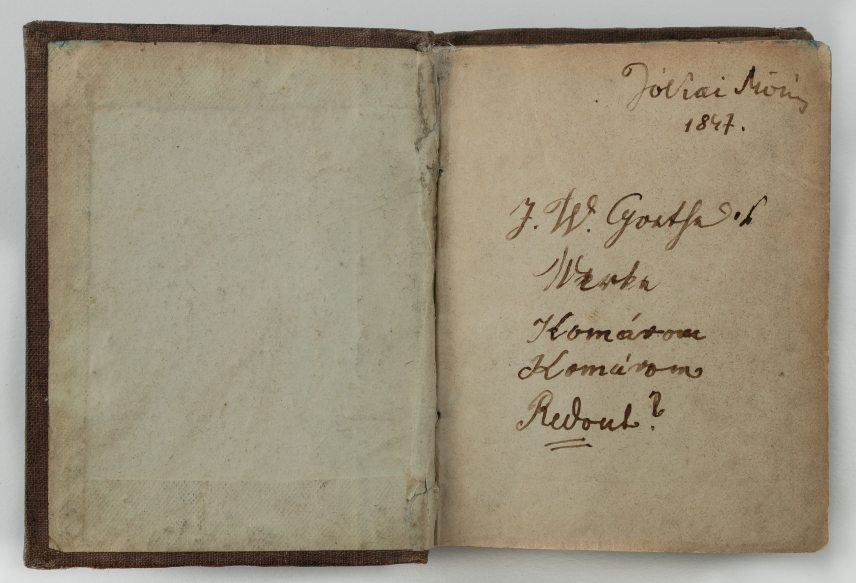 Jókai Móric
1847.
J. W. Goethe's
Werke
Komárom
Komárom
Redout?